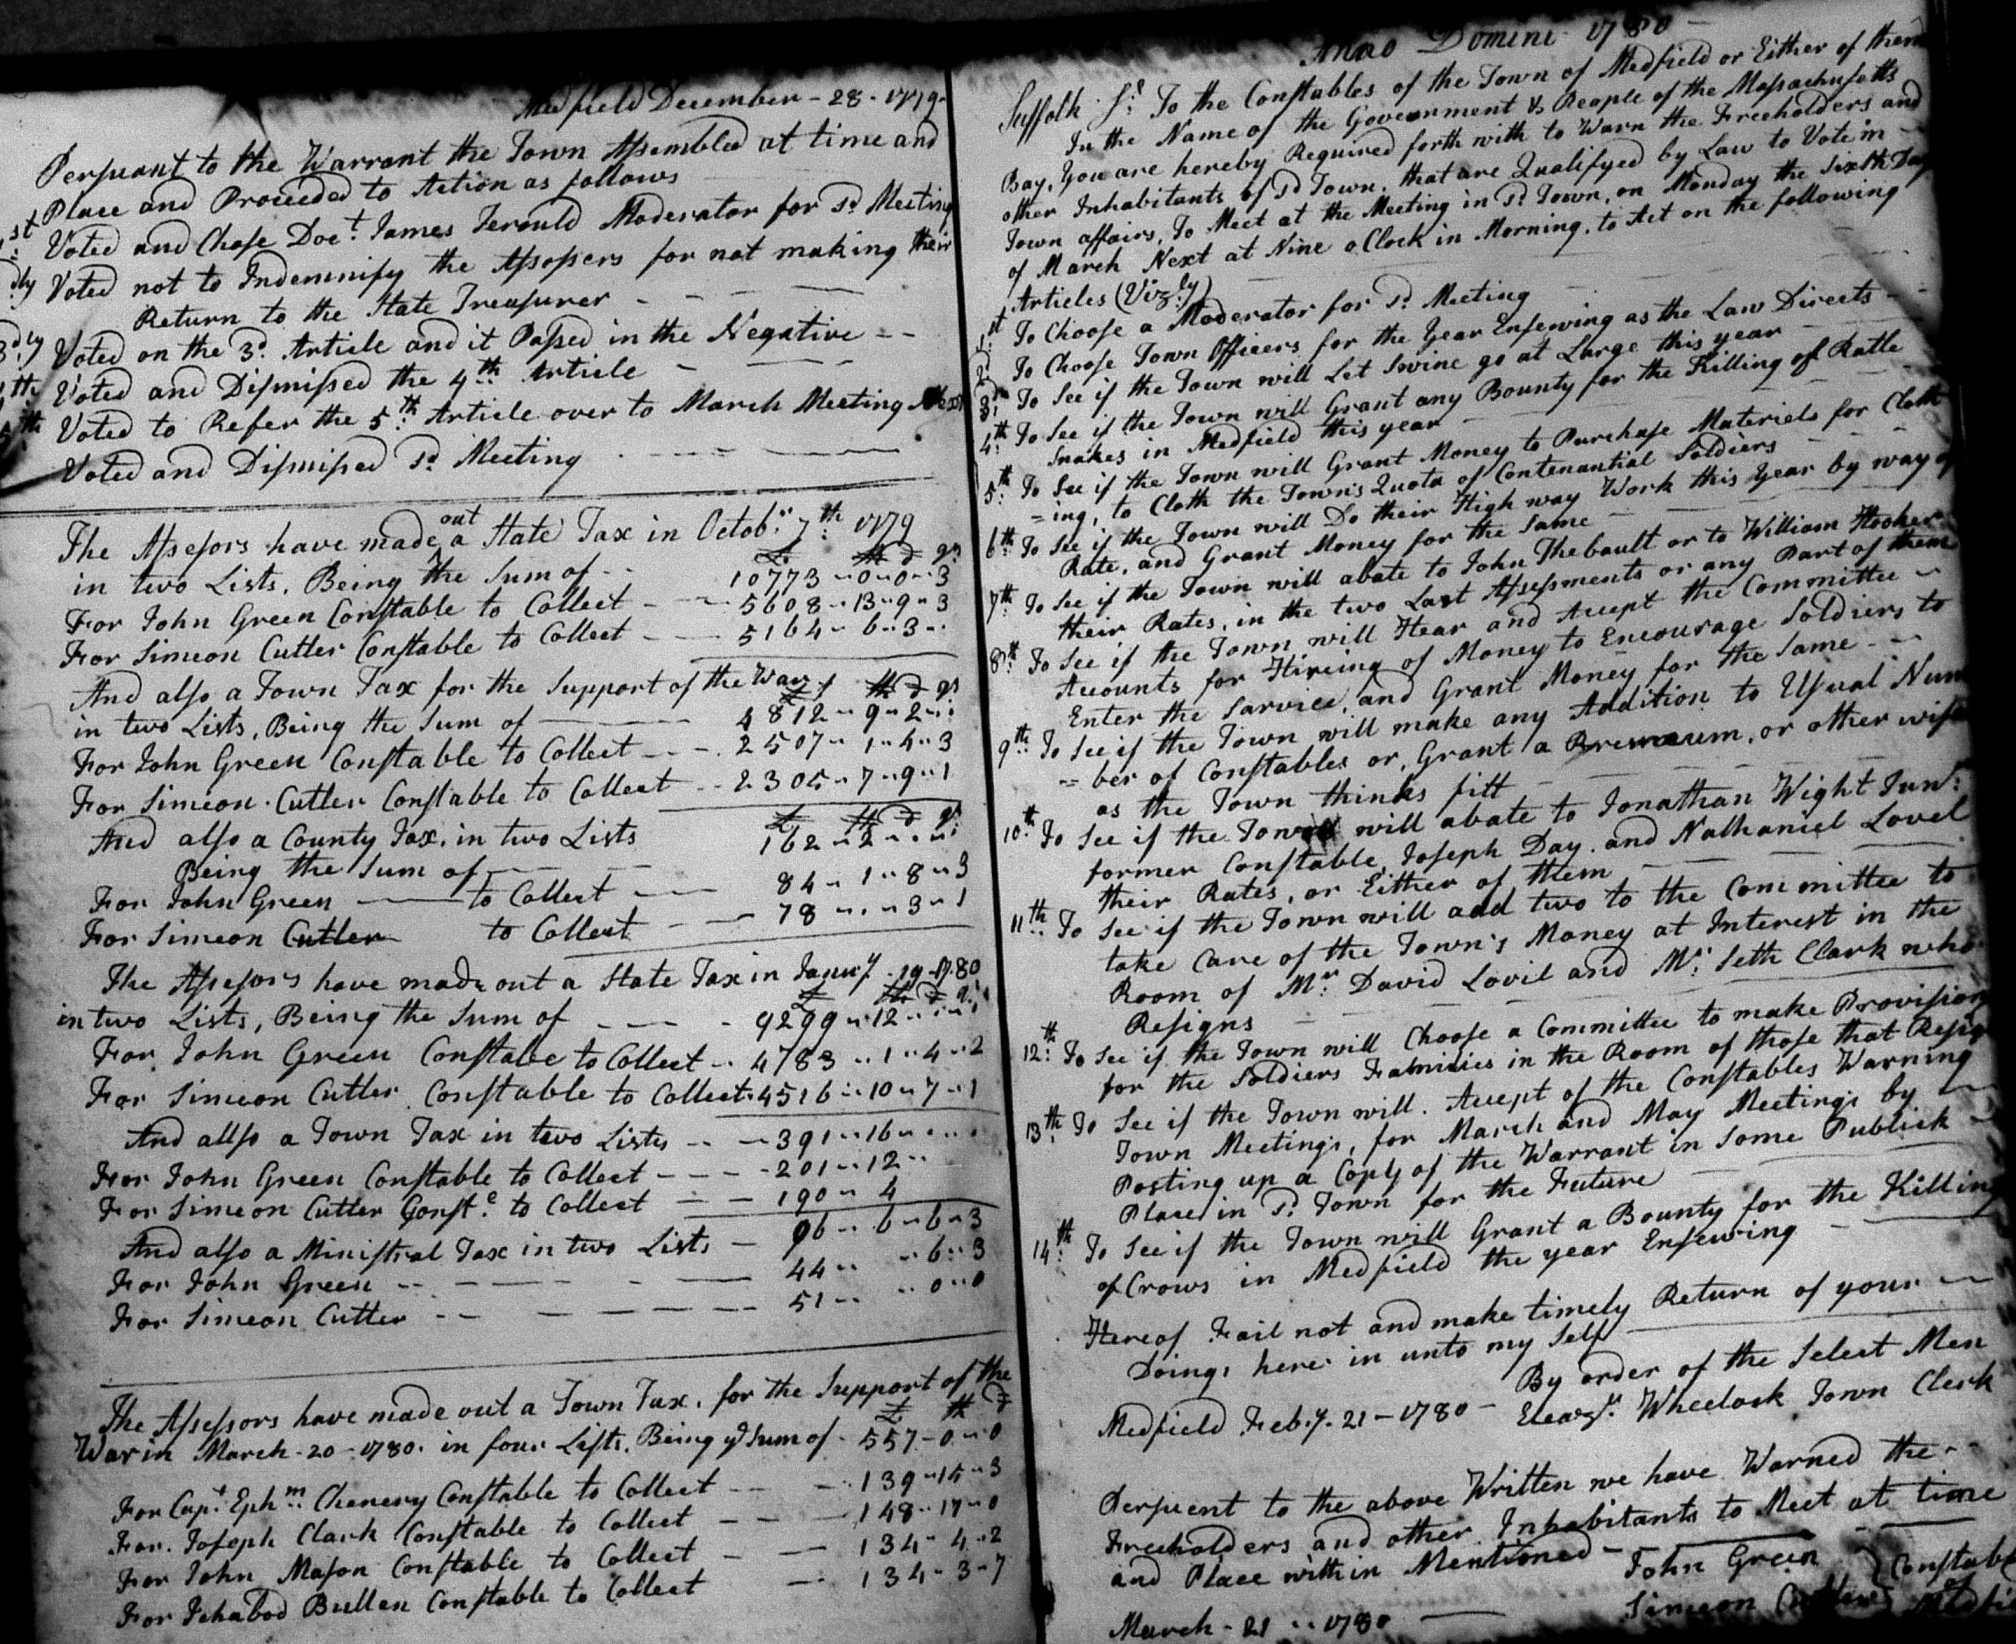 Medfield December - 28 - 1779
Persuant to the Warrant the Town Assembled at time and
Place and Proceeded to Action as follows
1st Voted and Chose Doct. James Jerould Moderator for sd. Meeting
dly Voted not to Indemnify the Assessors for not making their
Return to the State Treasurer
3dly Voted on the 3d. Article and it Passed in the Negative
4th Voted and Dismissed the 4th Article
5th Voted to Refer the 5th Article over to March Meeting Next
Voted and Dismissed sd Meeting
The Assessors have made out a State Tax in Octobr. 7th 1779
£ sh d qr
in two Lists, Being the Sum of 10773 - 0 - 0 - 3
For John Green Constable to Collect 5608 - 13 - 9 - 3
For Simeon Cutler Constable to Collect 5164 - 6 - 3
And also a Town Tax for the Support of the War
£ sh d qr
in two Lists, Being the Sum of 4812 - 9 - 2
For John Green Constable to Collect 2507 - 1 - 4 - 3
For Simeon Cutler Constable to Collect 2305 - 7 - 9 - 1
And also a County Tax, in two Lists
£ sh d qr
Being the Sum of 162 - 2
For John Green to Collect 84 - 1 - 8 - 3
For Simeon Cutler to Collect 78 - . - 3 - 1
The Assessors have made out a State Tax in Janury - 19 - 1780
£ sh d qr
in two Lists, Being the Sum of 9299 - 12
For John Green Constabe to Collect 4783 - 1 - 4 - 2
For Simeon Cutler Constable to Collect 4516 - 10 - 7 - 1
And allso a Town Tax in two Lists 391 - 16
For John Green Constable to Collect 201 - 12
For Simeon Cutler Conste. to Collect 190 - 4
And also a Ministral Tax in two Lists 96 - 6 - 6 - 3
For John Green 44 - 6 - 3
For Simeon Cutter 51 - 0 - 0
The Assessors have made out a Town Tax, for the Support of the
£ sh d
War in March - 20 - 1780. in four Lists, Being ye Sum of 557 - 0 - 0
For Capt. Ephm. Chenery Constable to Collect 139 - 15 - 3
For Joseph Clark Constable to Collect 148 - 17 - 0
For John Mason Constable to Collect 134 - 4 - 2
For Ichabod Bullen Constable to Collect 134 - 3 - 7
Anno Domini 1780
Suffolk Ss. To the Constables of the Town of Medfield or Either of them
In the Name of the Goverment & People of the Massachusetts
Bay, You are hereby Required forth with to Warn the Freeholders and
other Inhabitants of sd Town, that are Qualifyed by Law to Vote in
Town affairs, To Meet at the Meeting in sd. Town, on Monday the Sixth Day
of March Next at Nine oClock in Morning, to Act on the following
Articles (Vizly)
1st To Choose a Moderator for sd. Meeting
2d To Choose Town Officers for the Year Ensewing as the Law Directs
3d To See if the Town will Let Swine go at Large this year
4th To See if the Town will Grant any Bounty for the Killing of Ratle
Snakes in Medfield this year
5th To See if the Town will Grant Money to Purchase Materiels for Cloth
=ing, to Cloth the Town's Quota of Contenantial Soldiers
6th To See if the Town will Do their High way Work this Year by way of
Rate, and Grant Money for the Same
7th To See if the Town will abate to John Thebault or to William Hooker
their Rates, in the two Last Assessments or any Part of them
8th To See if the Town will Hear and Accept the Committee
Accounts for Hireing of Money to Encourage Soldiers to
Enter the Sarvice, and Grant Money for the Same
9th To See if the Town will make any Addition to Usual Num
=ber of Constables or, Grant a Premeum, or other wise
as the Town thinks fitt
10th To See if the Town will abate to Jonathan Wight Junr.
former Constable, Joseph Day, and Nathaniel Lovel
their Rates, or Either of them
11th To See if the Town will add two to the Committee to
take Care of the Town's Money at Interest in the
Room of Mr. David Lovil and Mr. Seth Clark who
Resigns
12th To See if the Town will Choose a Committee to make Provision
for the Soldiers Families in the Room of those that Resign
13th To See if the Town will. Accept of the Constables Warning
Town Meetings, for March and May Meetings by
Posting up a Copy of the Warrant in Some Publick
Place in sd. Town for the Future
14th To See if the Town will Grant a Bounty for the Killing
of Crows in Medfield the year Ensewing
Hereof Fail not and make timely Return of your
Doings here in unto my Self
By order of the Select Men
Medfield Feby. 21 - 1780 - Eleazr. Wheelock Town Clerk
Persuent to the above Written we have Warned the
Freeholders and other Inhabitants to Meet at time
and Place within Mentioned - John Green } Constab
March - 21 - 1780 Simeon Cutler